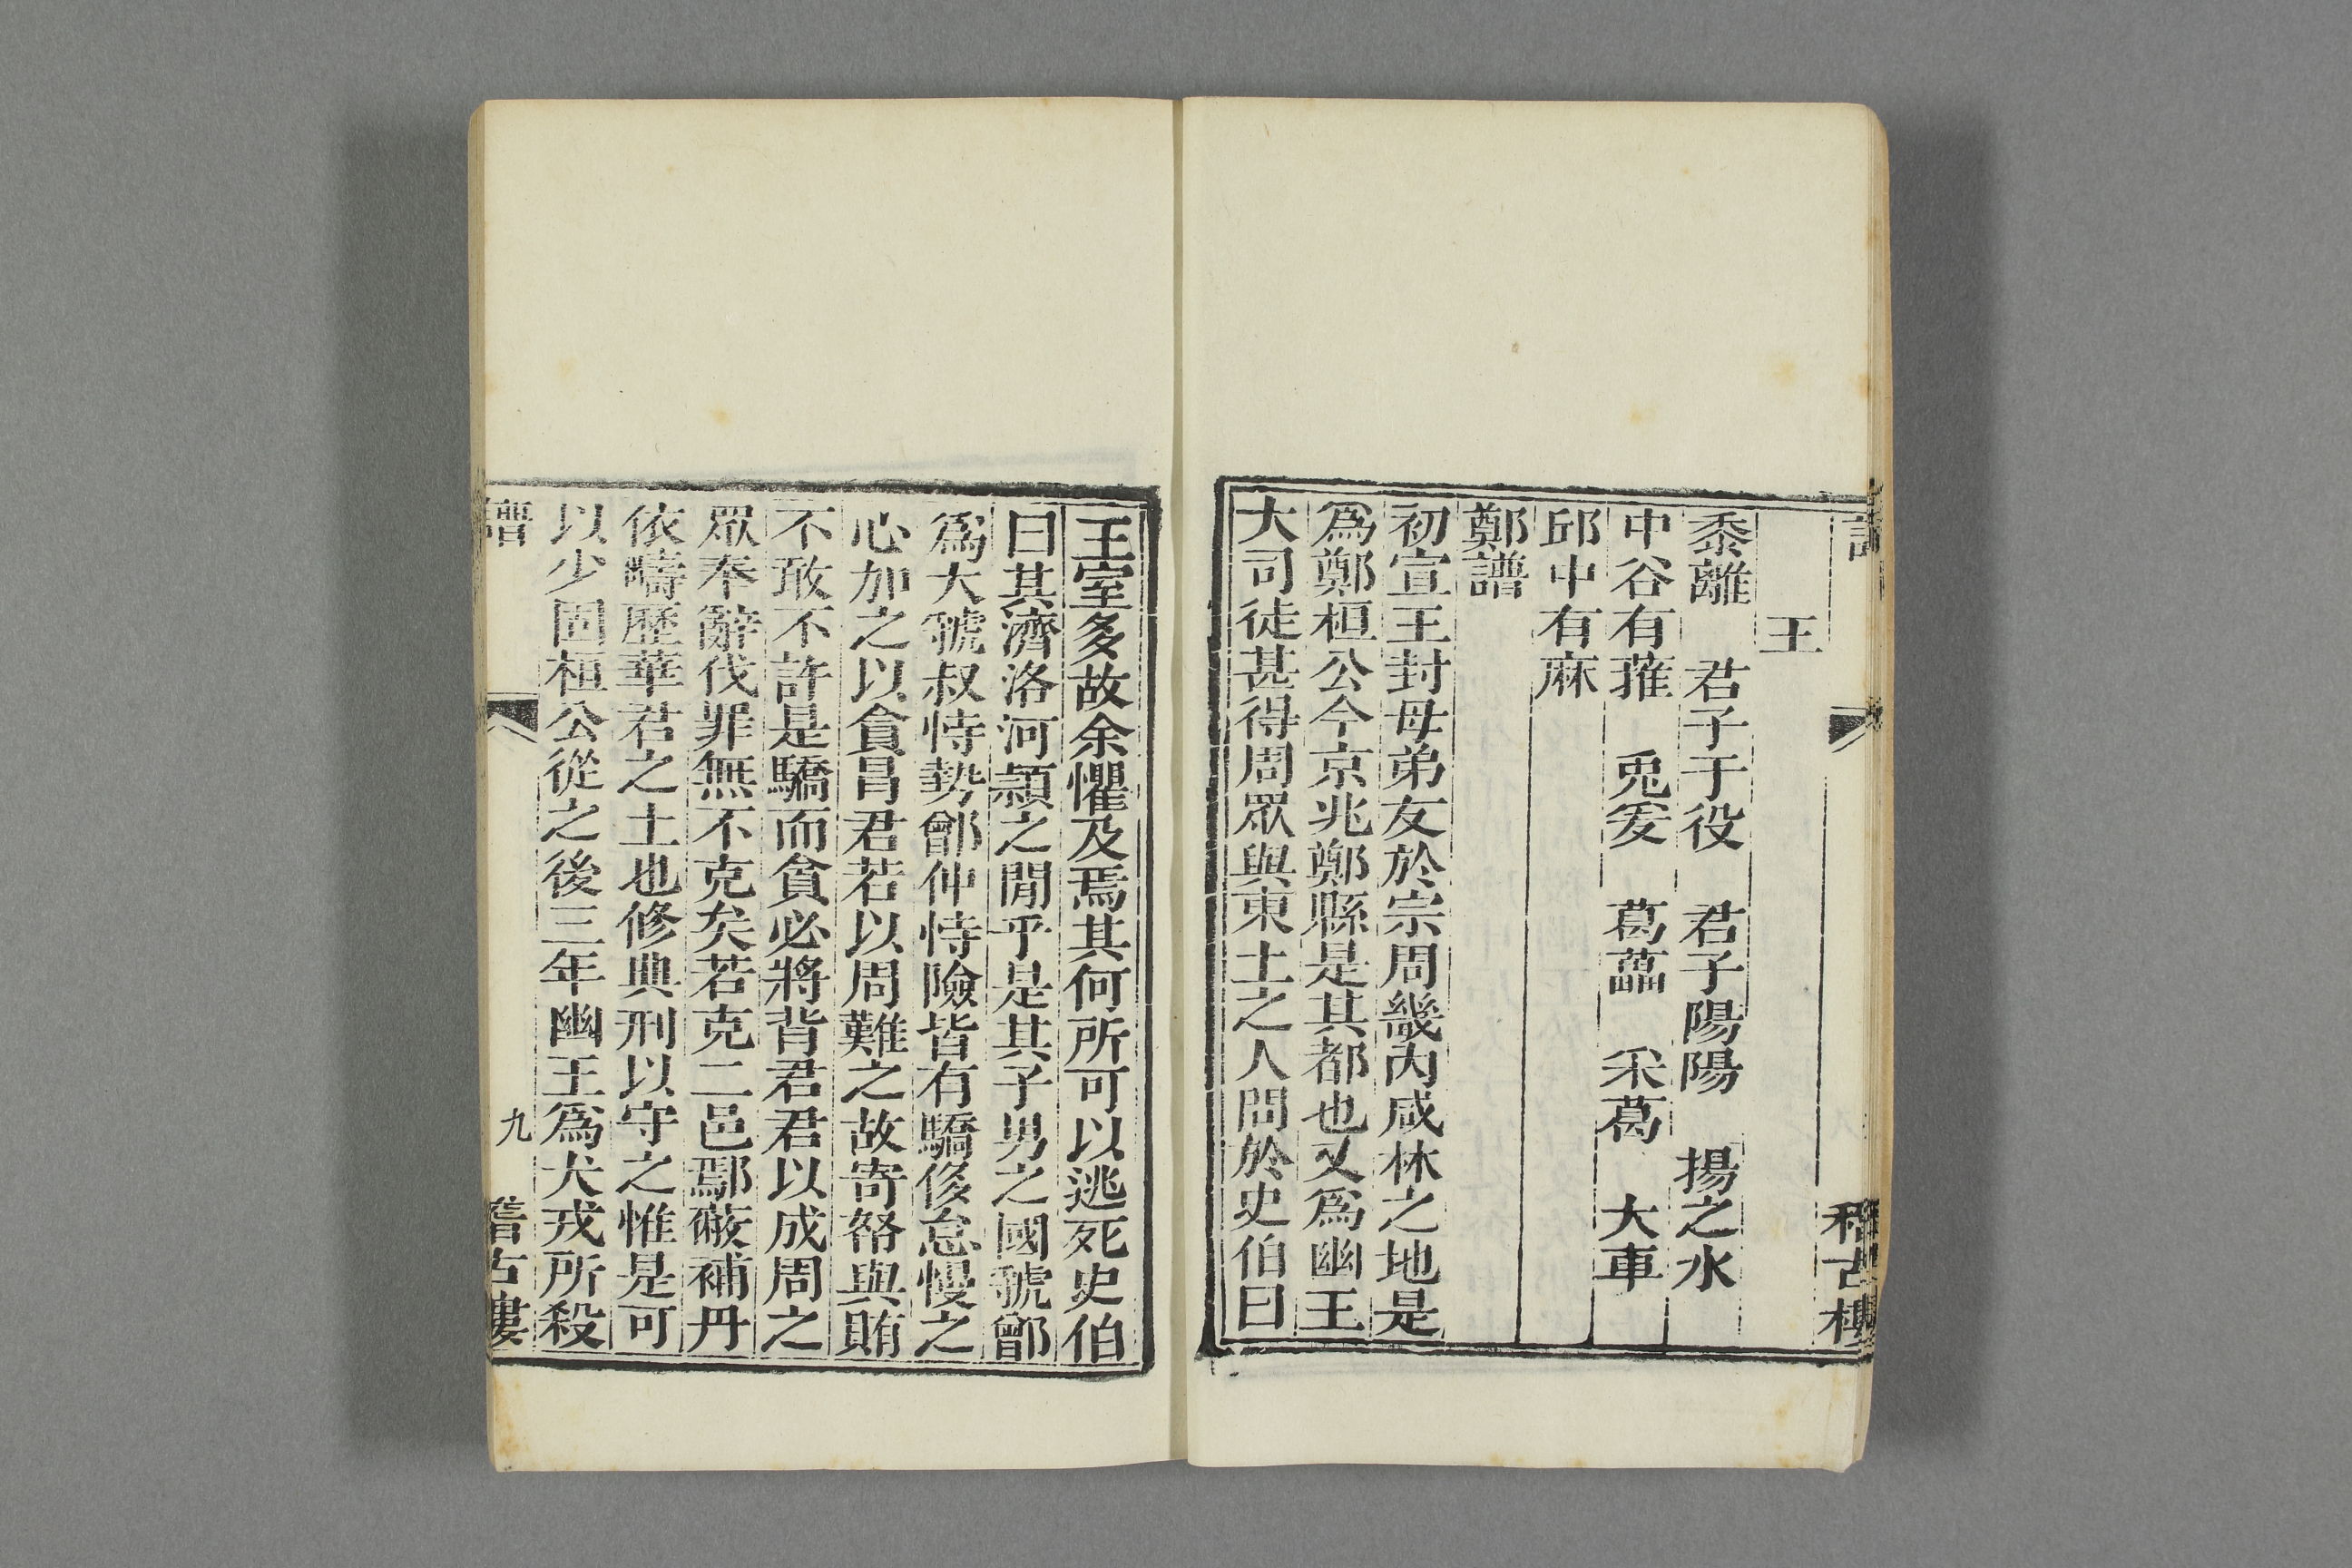 王
黍離　君子于役　君子陽陽　揚之水
中谷有蓷　兎爰　葛藟　采葛　大車
邱中有麻
鄭譜
初宣王封母弟友於宗周畿內咸林之地是
為鄭桓公今京兆鄭縣是其都也又為幽王
大司徒甚得周眾與東土之人問於史伯曰
稽古樓
王室多故余懼及焉其何所可以逃死史伯
曰其濟洛河潁之閒乎是其子男之國虢鄶
為大虢叔恃勢鄶仲恃險皆有驕侈怠慢之
心加之以貪冒君若以周難之故寄帑與賄
不敢不許是驕而貪必將背君君以成周之
眾奉辭伐罪無不克矣若克二邑鄢蔽補丹
依疇歷華君之土也修典刑以守之惟是可
以少固桓公從之後三年幽王為犬戎所殺
譜　九　稽古樓